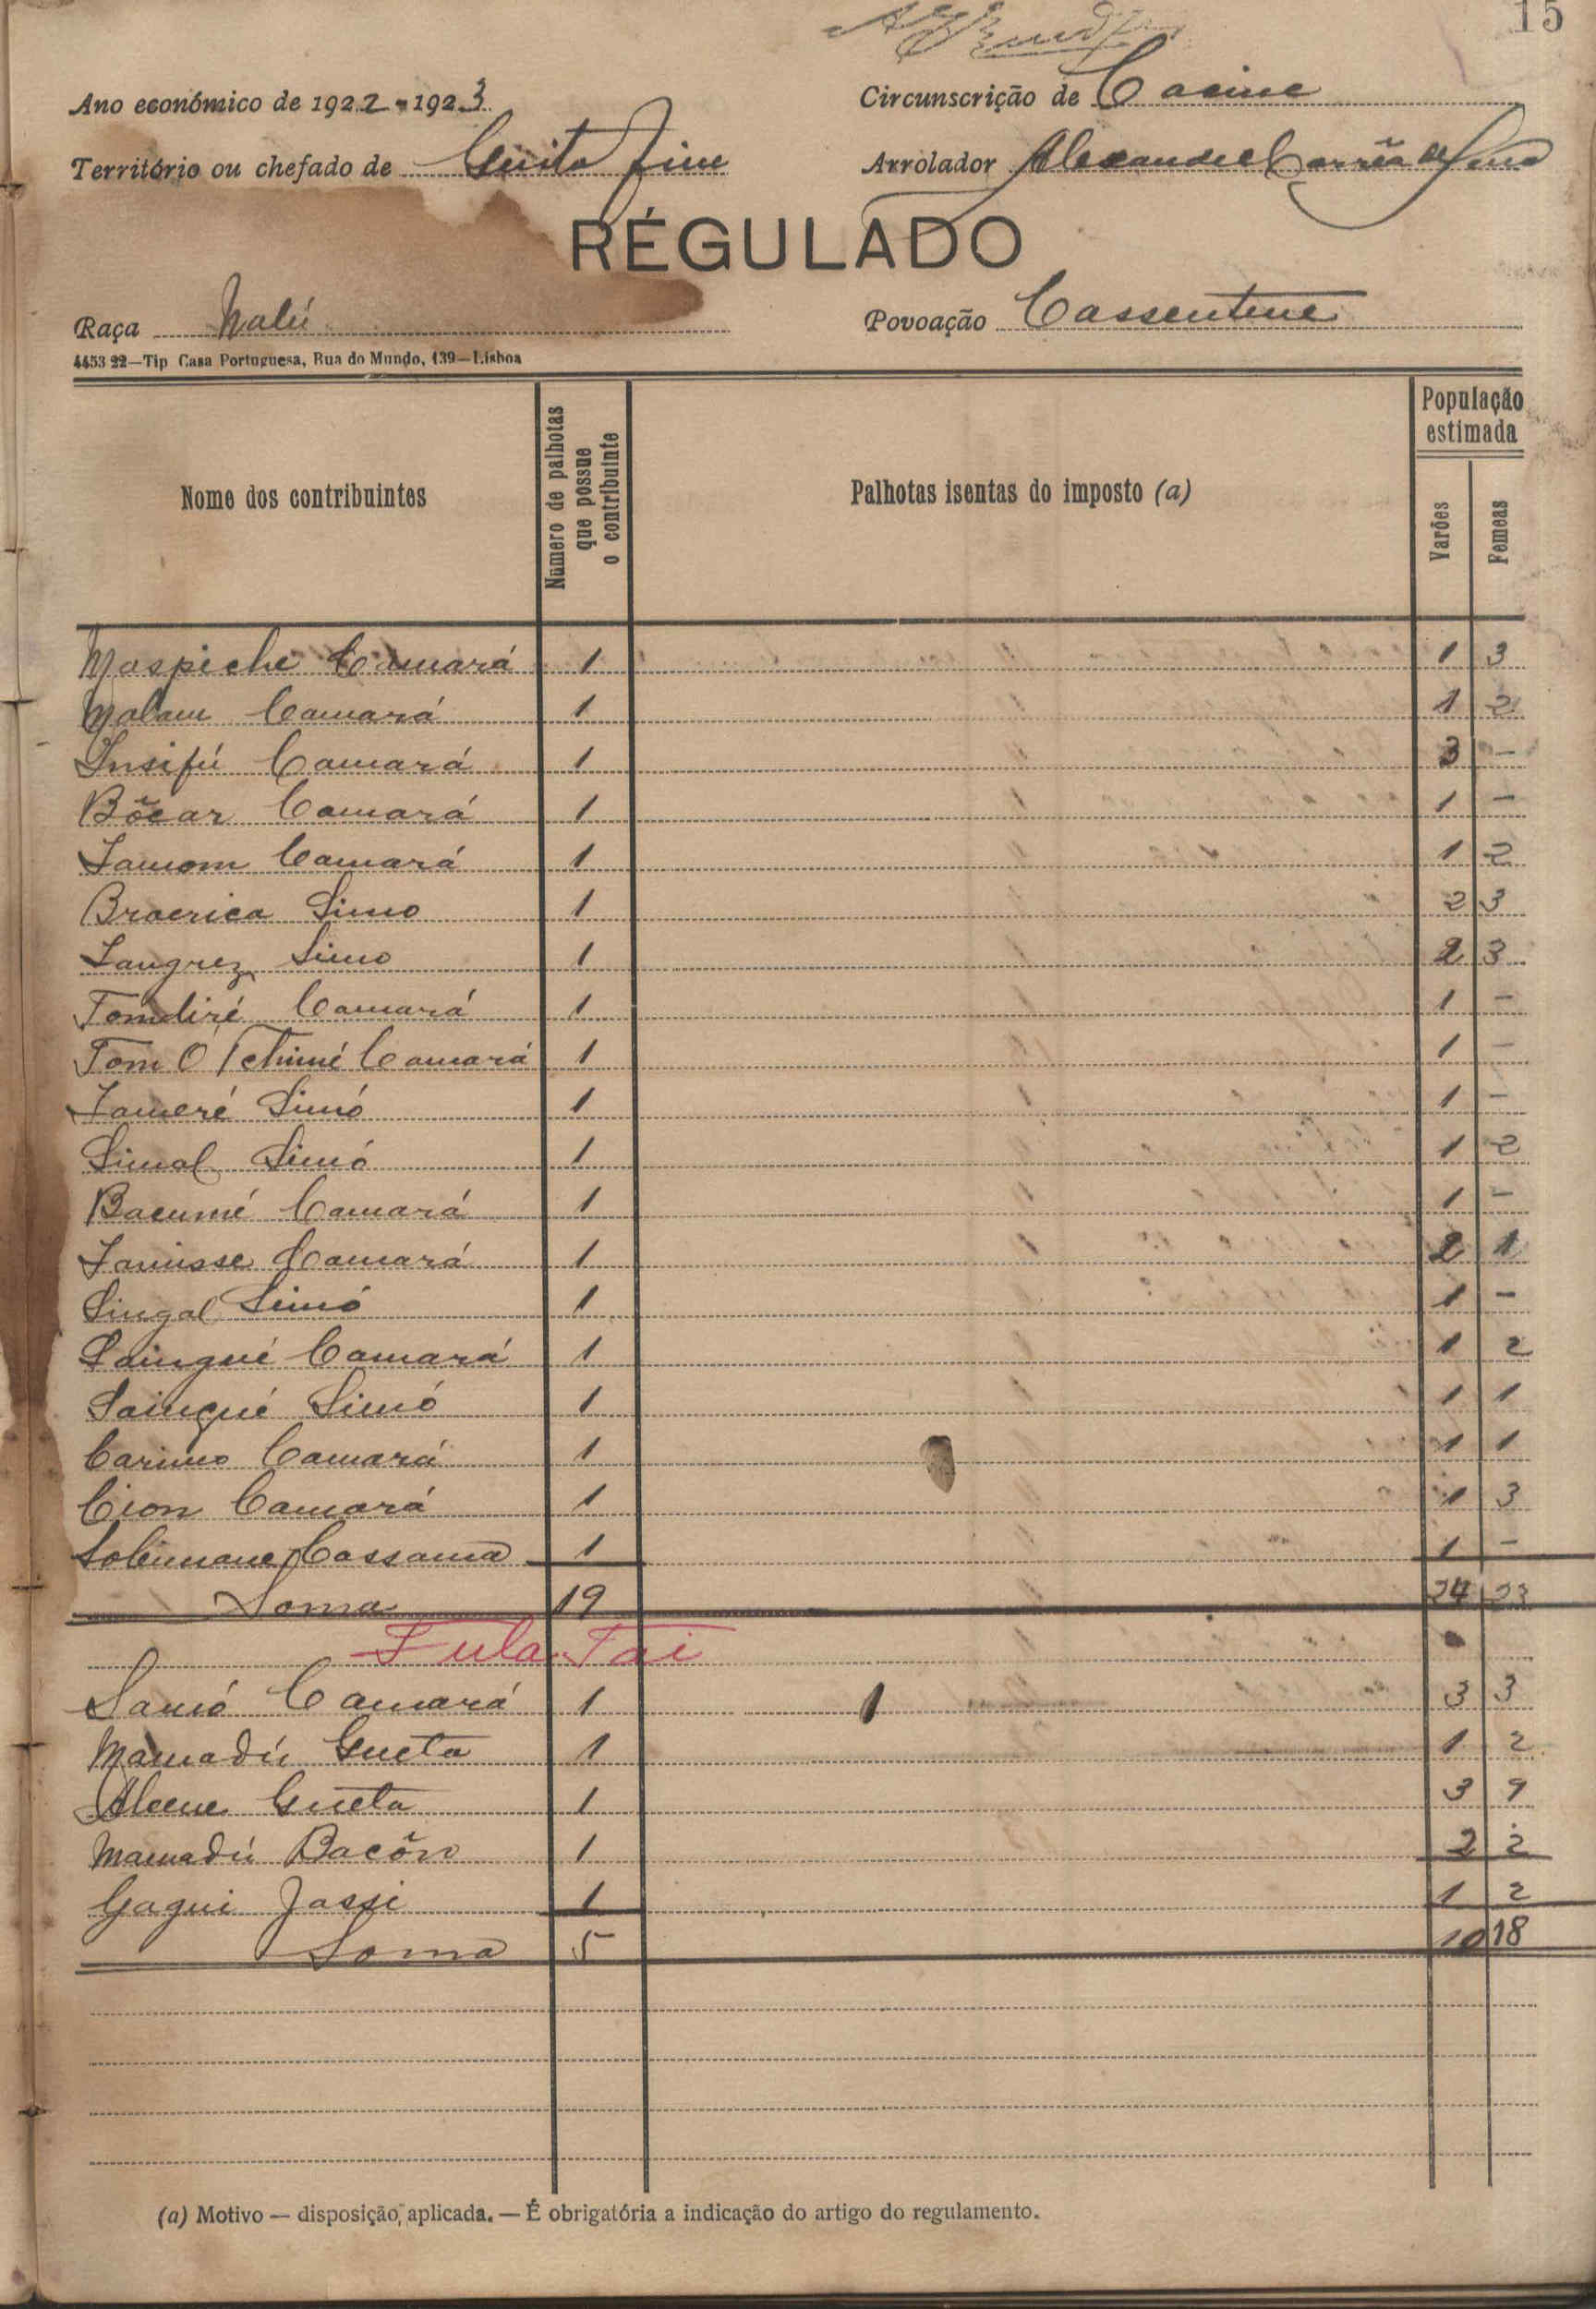 15
Ano económico de 1922-1923
Circunscrição de Cacine
Território ou chefado de Guita
Arrolador Alexandre Corrêa de
RÉGULADO
Raça Nalú
Povoação Cassentene
4453 22—Tip Casa Portuguesa, Rua do Mundo, 139—Lisboa
Nome dos contribuintes
Número de palhotas que possue o contribuinte
Palhotas isentas do imposto (a)
População estimada
Varões
Femeas
Maspiche Camará 1 1 3
Malam Camará 1 1 2
Insifú Camará 1 3 -
Bócar Camará 1 1 -
Camará 1 1 2
Simo 1 2 3
Simo 1 2 3
Tomdiré Camará 1 1 -
Tom O Tchimé Camará 1 1 -
Simó 1 1 -
Simal Simó 1 1 2
Bacumé Camará 1 1 -
Camará 1 2 1
Singal Simó 1 1 -
Saingué Camará 1 1 2
Simó 1 1 1
Carimo Camará 1 1 1
Cion Camará 1 1 3
Soleimane Cassama 1 1 -
Soma 19 24 23
Fula Tai
Samó Camará 1 1 3 3
Mamadú Gueta 1 1 2
Gueta 1 3 9
Mamadú Bacôro 1 2 2
Gagui Jassi 1 1 2
Soma 5 10 18
(a) Motivo — disposição, aplicada. — É obrigatória a indicação do artigo do regulamento.